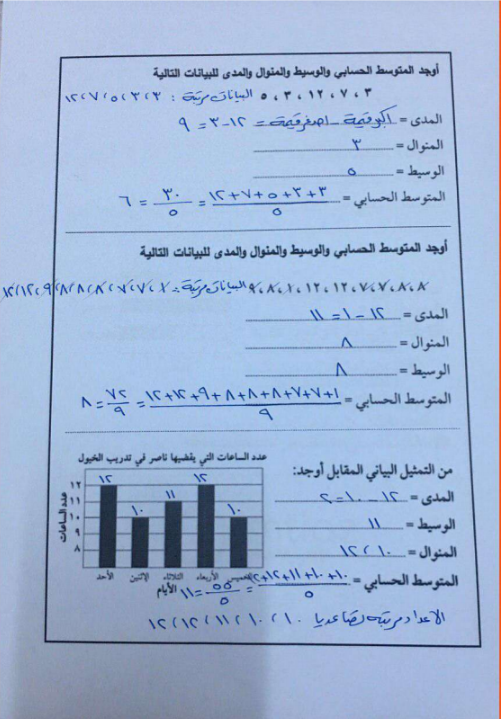 أوجد المتوسط الحسابي والوسيط والمنوال والمدى للبيانات التالية
٣ ، ٧ ، ١٢ ، ٣ ، ٥ البيانات مرتبة : ٣،٣،٥،٧،١٢
المدى = اكبر قيمة - اصغر قيمة = ١٢ - ٣ = ٩
المنوال = ٣
الوسيط = ٥
المتوسط الحسابي = ٣+٣+٥+٧+١٢ / ٥ = ٣٠ / ٥ = ٦
أوجد المتوسط الحسابي والوسيط والمنوال والمدى للبيانات التالية
٨ ، ٨ ، ٧ ، ٧ ، ١٢ ، ١٢ ، ١ ، ٨ ، ٩ البيانات مرتبة : ١،٧،٧،٨،٨،٨،٩،١٢،١٢
المدى = ١٢ - ١ = ١١
المنوال = ٨
الوسيط = ٨
المتوسط الحسابي = ١+٧+٧+٨+٨+٨+٩+١٢+١٢ / ٩ = ٧٢ / ٩ = ٨
من التمثيل البياني المقابل أوجد:
المدى = ١٢ - ١٠ = ٢
الوسيط = ١١
المنوال = ١٠ ، ١٢
المتوسط الحسابي = ١٠+١٠+١١+١٢+١٢ / ٥ = ٥٥ / ٥ = ١١
الاعداد مرتبه تصاعديا ١٠،١٠،١١،١٢،١٢
عدد الساعات التي يقضيها ناصر في تدريب الخيول
عدد الساعات
١٢
١١
١٠
٩
٨
١٢ ١٠ ١١ ١٢ ١٠
الأحد الاثنين الثلاثاء الأربعاء الخميس
الأيام